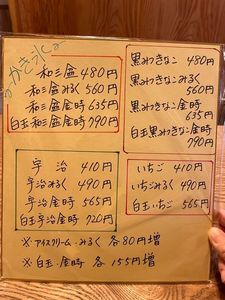 かき氷
和三盆 480円
和三盆みるく 560円
和三盆金時 635円
白玉和三盆金時 790円
黒みつきなこ 480円
黒みつきなこみるく 560円
黒みつきなこ金時 635円
白玉黒みつきなこ金時 790円
宇治 410円
宇治みるく 490円
宇治金時 565円
白玉宇治金時 720円
いちご 410円
いちごみるく 490円
白玉いちご 565円
※アイスクリーム・みるく 各80円増
※白玉・金時 各155円増